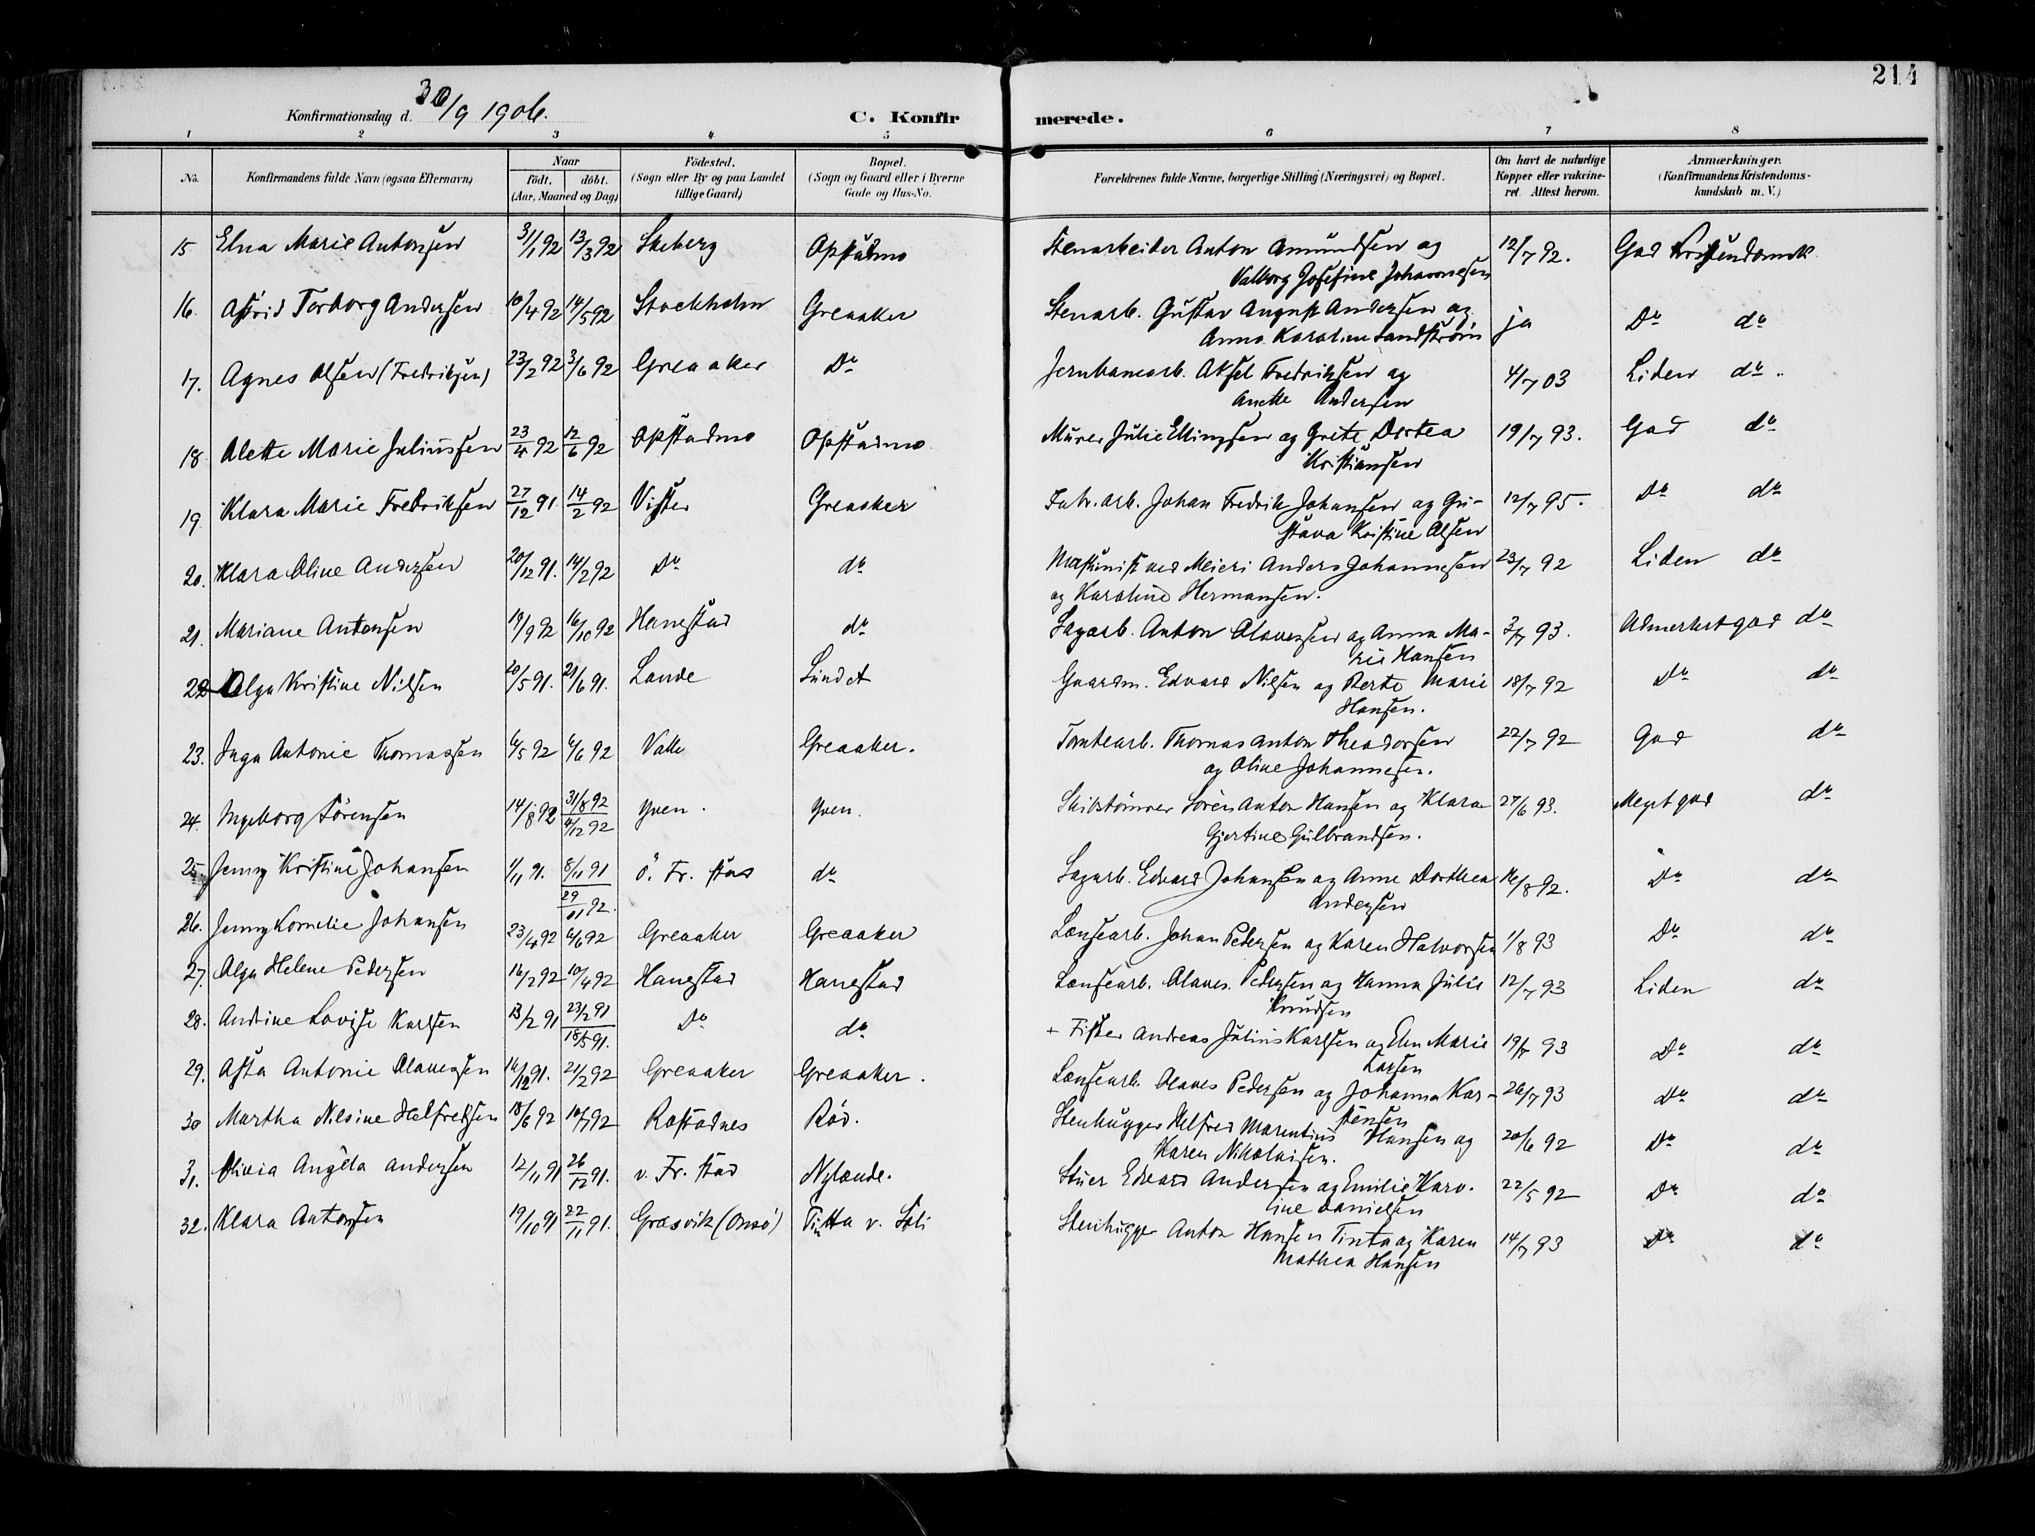 214
Konfirmationsdag d. 30/9 1906.
C. Konfirmerede.
1 2 3 4 5 6 7 8
No. | Konfirmandens fulde Navn (ogsaa Efternavn) | Naar født, døbt. (Aar, Maaned og Dag) | Födested. (Sogn eller By og paa Landet tillige Gaard) | Bopæl. (Sogn og Gaard eller i Byerne Gade og Hus-No. | Forældrenes fulde Navne, borgerlige Stilling (Næringsvei) og Bopæl. | Om havt de naturlige Kopper eller vakcineret. Attest herom. | Anmærkninger. (Konfirmandens Kristendomskundskab m. V.)
15 Elna Marie Antonsen 31/1 92 13/3 92 Skeberg Opstadmo Stenarbeider Anton Amundsen og 12/7 92. God Kristendomsk.
Valborg Josefine Johannesen
16. Astrid Torborg Andersen 10/4 92 14/5 92 Stockholm Greaaker Stenarb. Gustav August Andersen og ja Do do
Anna Karoline Sandström
17. Agnes Olsen (Fredriksen) 23/2 92 3/6 92 Greaaker Do Jernbanearb. Aksel Fredriksen og 4/7 03 Liden do.
Anette Andersen
18 Alette Marie Juliussen 23/4 92 12/6 92 Opstadmo Opstadmo Murer Julie Ellingsen og Grete Dortea 19/7 93. God do
Kristiansen
19 Klara Marie Fredriksen 27/12 91. 14/2 92 Vister Greaaker Fabr. arb. Johan Fredrik Johansen og Gu- 12/7 95. Do do
stava Kristine Olsen
20. Klara Oline Andersen 20/12 91. 14/2 92 Do do Maskinist ved Meieri Anders Johannesen 23/7 92 Liden do
og Karoline Hermansen.
21. Mariane Antonsen 19/9 92 16/10 92 Hanestad do Sagarb. Anton Olavesen og Anna Ma- 3/7 93. Udmerket god do
rie Hansen
22 Olga Kristine Nilsen 20/5 91. 21/6 91. Lande Sundet Gaardm. Edvard Nilsen og Berte Marie 18/7 92 Do do
Hansen.
23. Inga Antonie Thomassen 6/5 92 6/6 92 Valle Greaaker. Tomtearb. Thomas Anton Theodorsen 22/7 92 God do
og Oline Johannesen.
24. Ingeborg Sörensen 14/8 92 31/8 92 4/12 92 Yven. Yven. Skibstømrer Sören Anton Hansen og Klara 27/6 93. Meget god do
Gjertine Gulbrandsen.
25. Jenny Kristine Johansen 1/11 91. 8/11 91 29/11 92. Ö. Fr. stad do Sagarb. Edvard Johansen og Anne Dorthea 16/8 92. Do do
Andersen
26. Jenny Kornelie Johansen 23/4 92 6/6 92 Greaaker Greaaker Lænsearb. Johan Pedersen og Karen Halvorsen 1/8 93 Do do
27. Olga Helene Pedersen 16/2 92 10/4 92 Hanestad Hanestad Lænsearb. Olaves Pedersen og Hanna Julie 12/7 93 Liden do
Knudsen
28. Andrine Lovise Karlsen 13/2 91 23/2 91 18/5 91. Do do + Fisker Andreas Julius Karlsen og Elen Marie 19/7 93 Do do
Larsen
29. Asta Antonie Olavesen 16/12 91. 21/2 92 Greaaker Greaaker. Lænsearb. Olaves Pedersen og Johanna Kar- 26/7 93 Do do
stensen
30 Martha Nilsine Helfredsen 18/6 92 10/7 92 Rostadnes Röd. Stenhugger Helfred Marentius Hansen og 20/6 92 Do do
Karen Nikolaisen.
31. Olivia Angela Andersen 12/11 91 26/12 91. v. Fr. stad Nylænde. Stuer Edvard Andersen og Emilie Karo- 22/5 92 Do do
line Danielsen
32. Klara Antonsen 19/10 91 22/11 91. Græsvik (Onsö) Tinta v. Soli Stenhugger Anton Hansen Tinta og Karen 14/7 93 Do do
Mathea Hansen